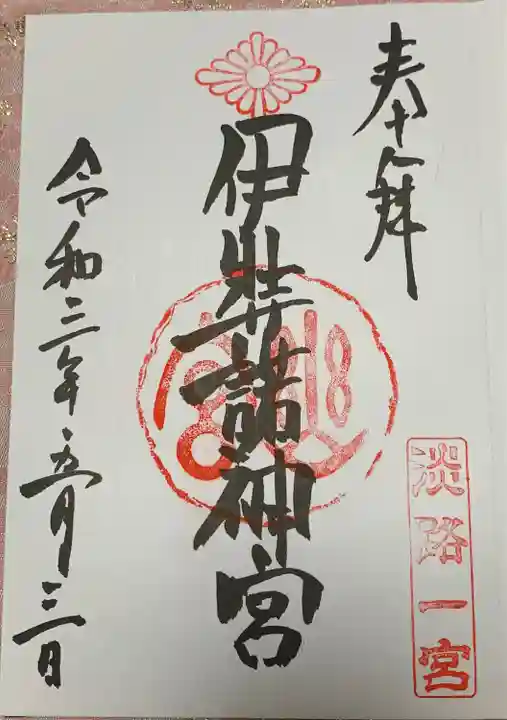 奉拝
伊弉諾神宮
淡路一宮
令和三年五月三日